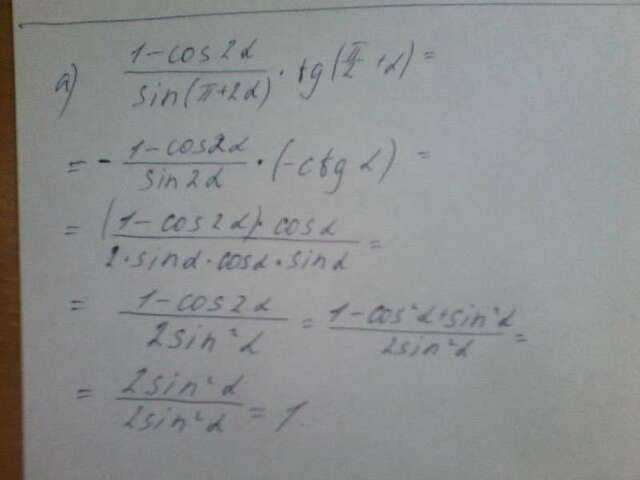 а) (1-cos2α)/(sin(π+2α)) · tg(π/2+α) =
= - (1-cos2α)/(sin2α) · (-ctg α) =
= ((1-cos2α)·cosα)/(2·sinα·cosα·sinα) =
= (1-cos2α)/(2sin²α) = (1-cos²α+sin²α)/(2sin²α) =
= (2sin²α)/(2sin²α) = 1